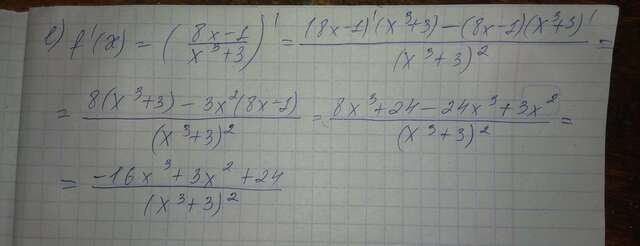 e) f'(x) = ( (8x-1)/(x³+3) )' = ((8x-1)'(x³+3)-(8x-1)(x³+3)')/(x³+3)² =
= (8(x³+3)-3x²(8x-1))/(x³+3)² = (8x³+24-24x³+3x²)/(x³+3)² =
= (-16x³+3x²+24)/(x³+3)²